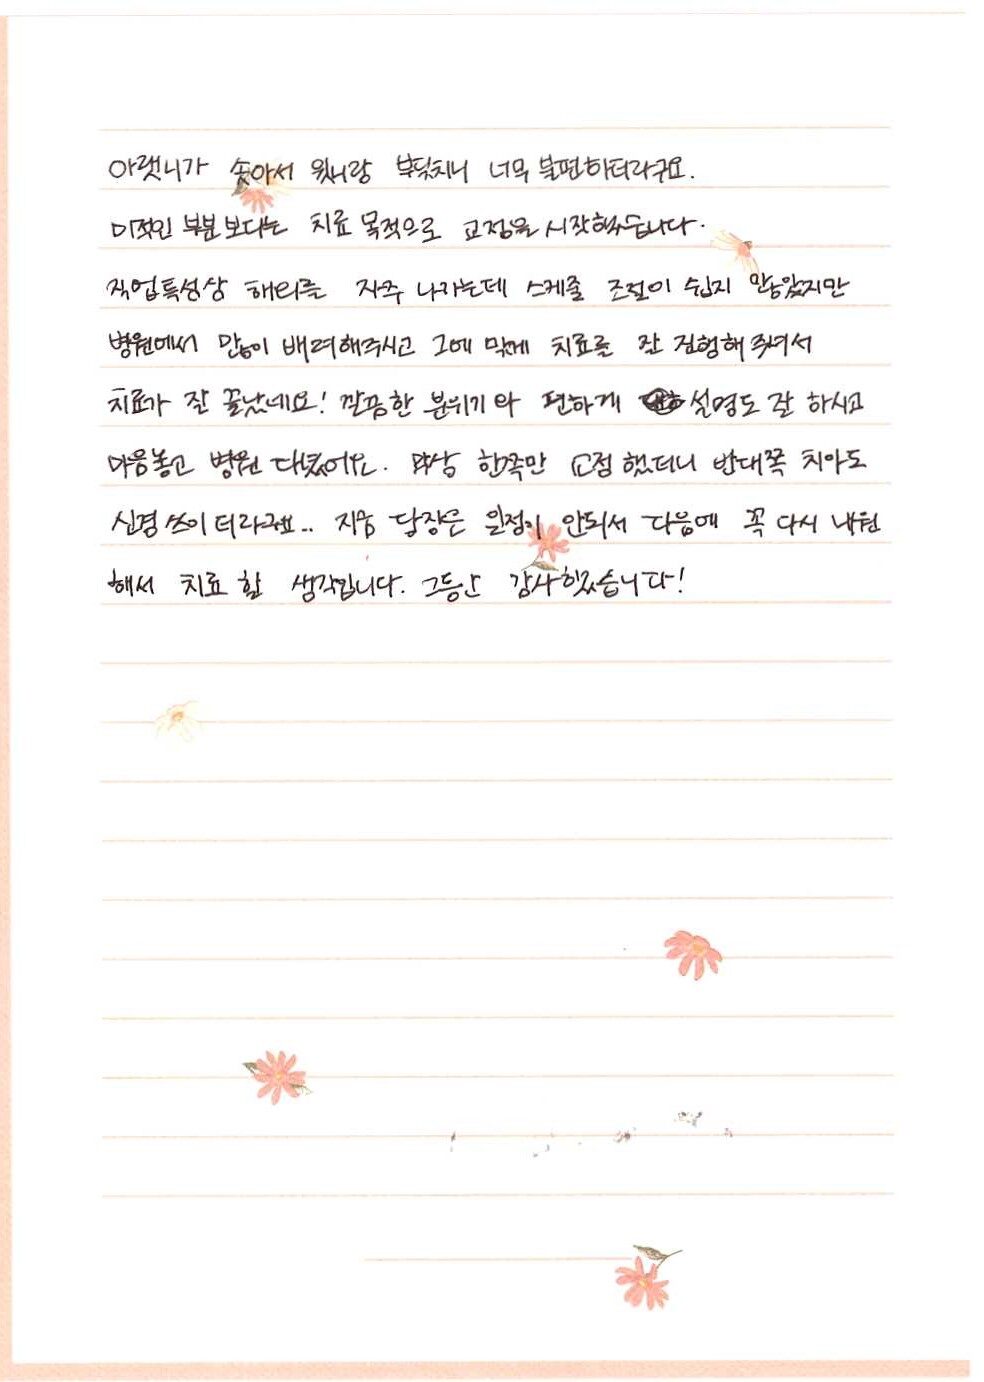 아랫니가 솟아서 윗니랑 부딪치니 너무 불편하더라구요.
미적인 부분보다는 치료 목적으로 교정을 시작했습니다.
직업특성상 해외를 자주 나가는데 스케줄 조절이 쉽지 않았지만
병원에서 많이 배려해주시고 그에 맞게 치료를 잘 진행해주셔서
치료가 잘 끝났네요! 깔끔한 분위기와 편하게 설명도 잘 하시고
마음놓고 병원 다녔어요. 막상 한쪽만 교정했더니 반대쪽 치아도
신경쓰이더라구요.. 지금 당장은 일정이 안되서 다음에 꼭 다시 내원
해서 치료 할 생각입니다. 그동안 감사했습니다!